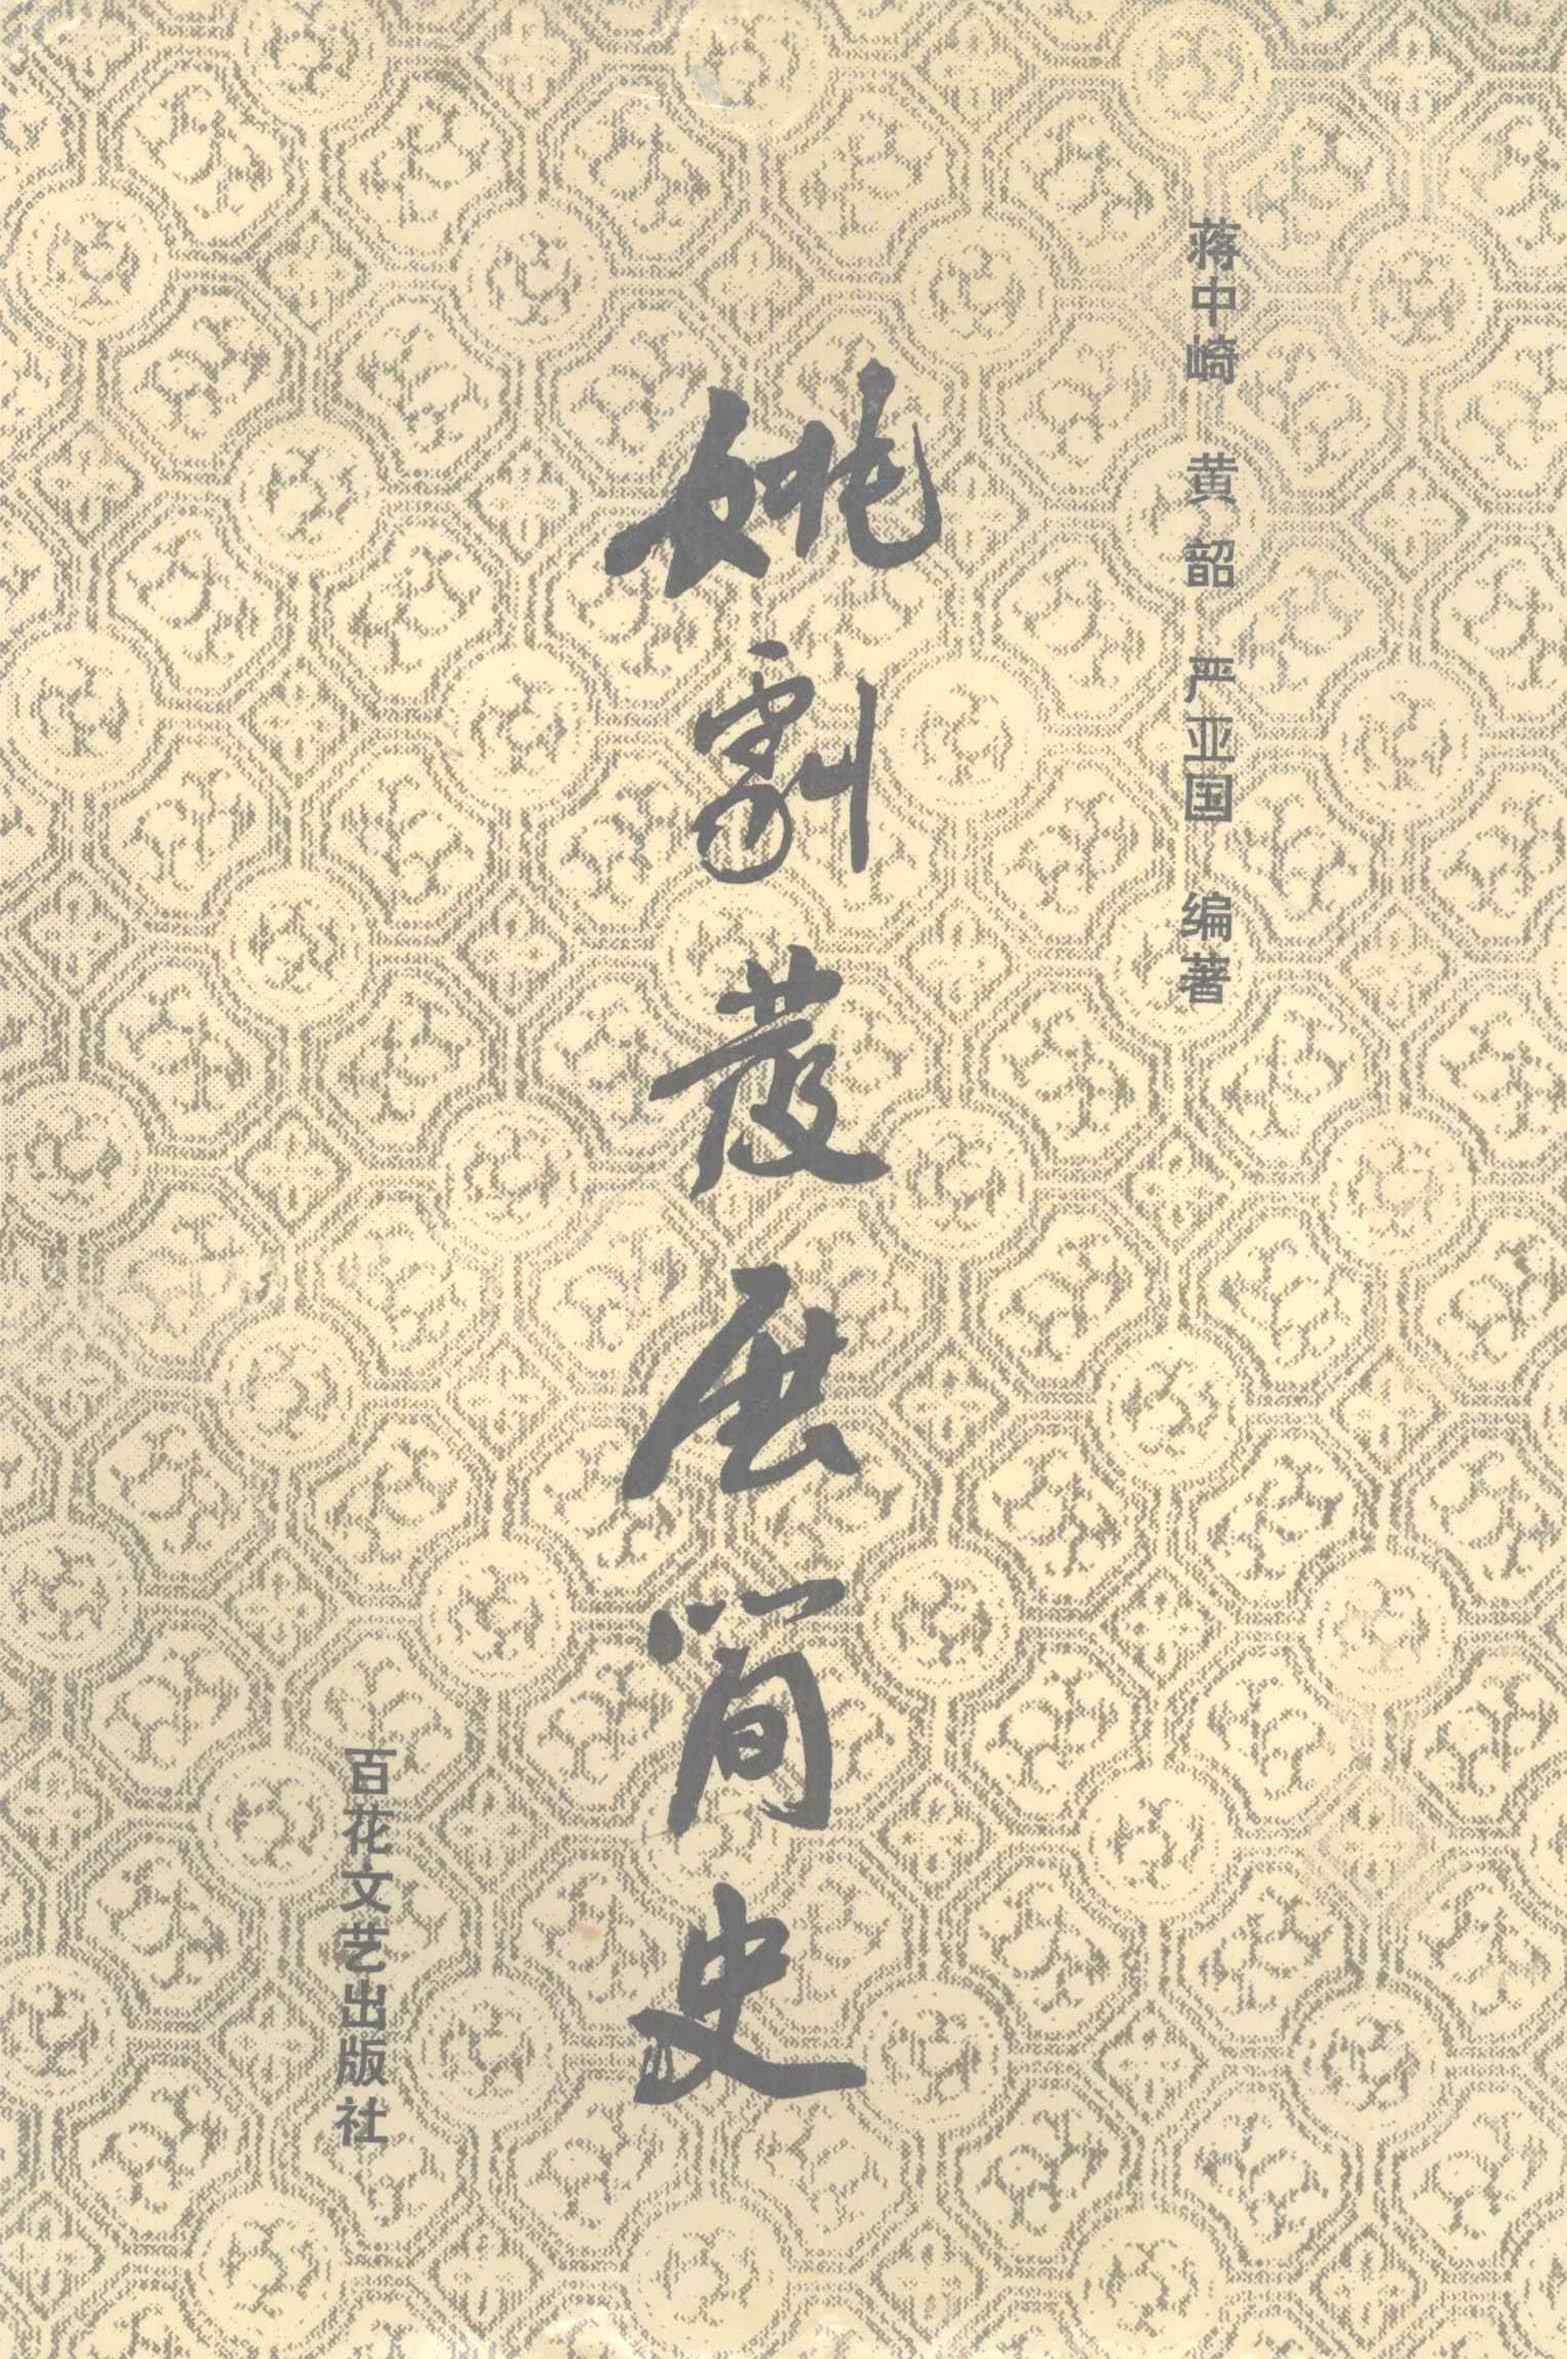 蒋中崎 黄韶 严亚国 编著
姚剧發展简史
百花文艺出版社